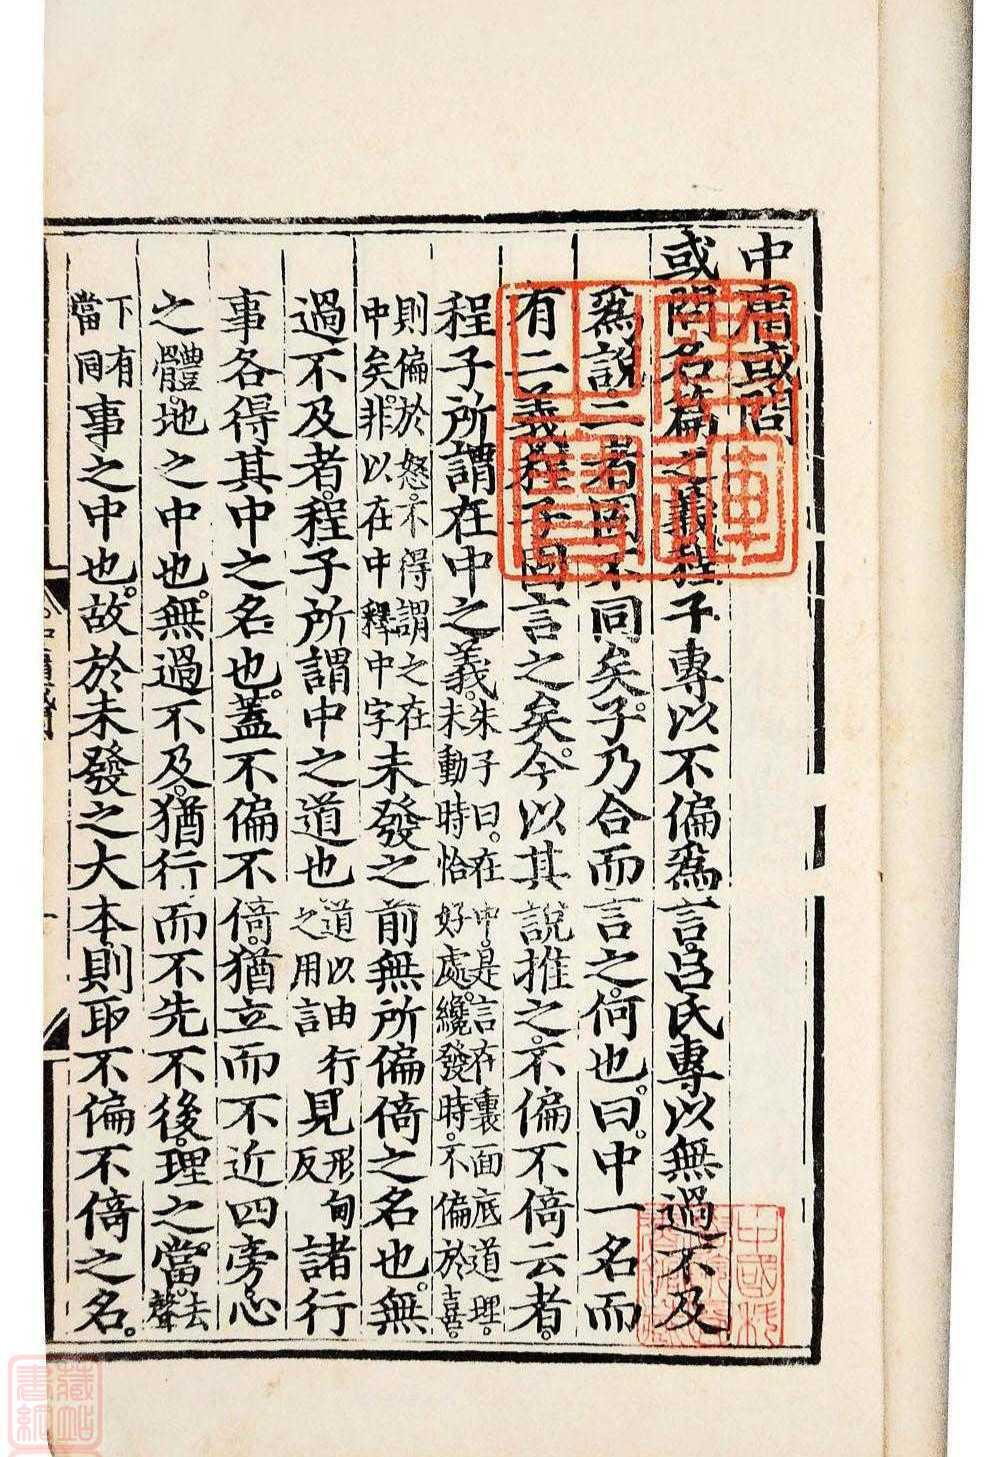 中庸或問
或問名篇之義程子專以不偏爲言呂氏專以無過不及
爲說二者固不同矣子乃合而言之何也曰中一名而
有二義程子固言之矣今以其說推之不偏不倚云者
程子所謂在中之義朱子曰在中是言在裏面底道理
未動時恰好處纔發時不偏於喜
則偏於怒不得謂之在
中矣非以在中釋中字未發之前無所偏倚之名也無
過不及者程子所謂中之道也道以由行
之用言見形甸反諸行
事各得其中之名也蓋不偏不倚猶立而不近四旁心
之體體地之中也無過不及猶行而不先不後理之當去聲
下有當同事之中也故於未發之大本則取不偏不倚之名